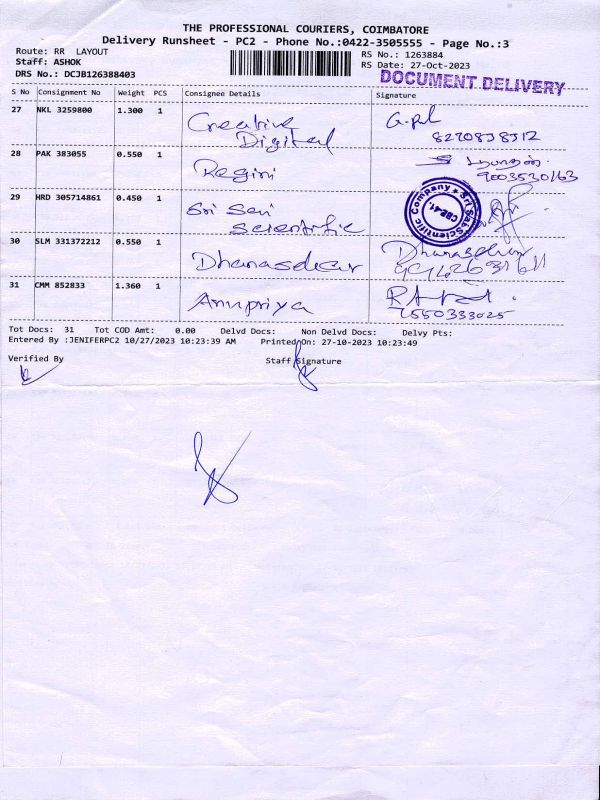 THE PROFESSIONAL COURIERS, COIMBATORE
Delivery Runsheet - PC2 - Phone No.:0422-3505555 - Page No.:3
Route: RR LAYOUT
RS No.: 1263884
Staff: ASHOK
RS Date: 27-Oct-2023
DRS No.: DCJB126388403
DOCUMENT DELIVERY
S No Consignment No Weight PCS Consignee Details Signature
27 NKL 3259800 1.300 1 Creative Digital
8220838512
28 PAK 383055 0.550 1 Regini
9003530163
29 HRD 305714861 0.450 1 Sri Sai Scientific
Sri Sai Scientific Company CBE-41
30 SLM 331372212 0.550 1 Dhanasekar Dhanasekar
31 CMM 852833 1.360 1 Anupriya
7550333025
Tot Docs: 31 Tot COD Amt: 0.00 Delvd Docs: Non Delvd Docs: Delvy Pts:
Entered By :JENIFERPC2 10/27/2023 10:23:39 AM Printed On: 27-10-2023 10:23:49
Verified By Staff Signature